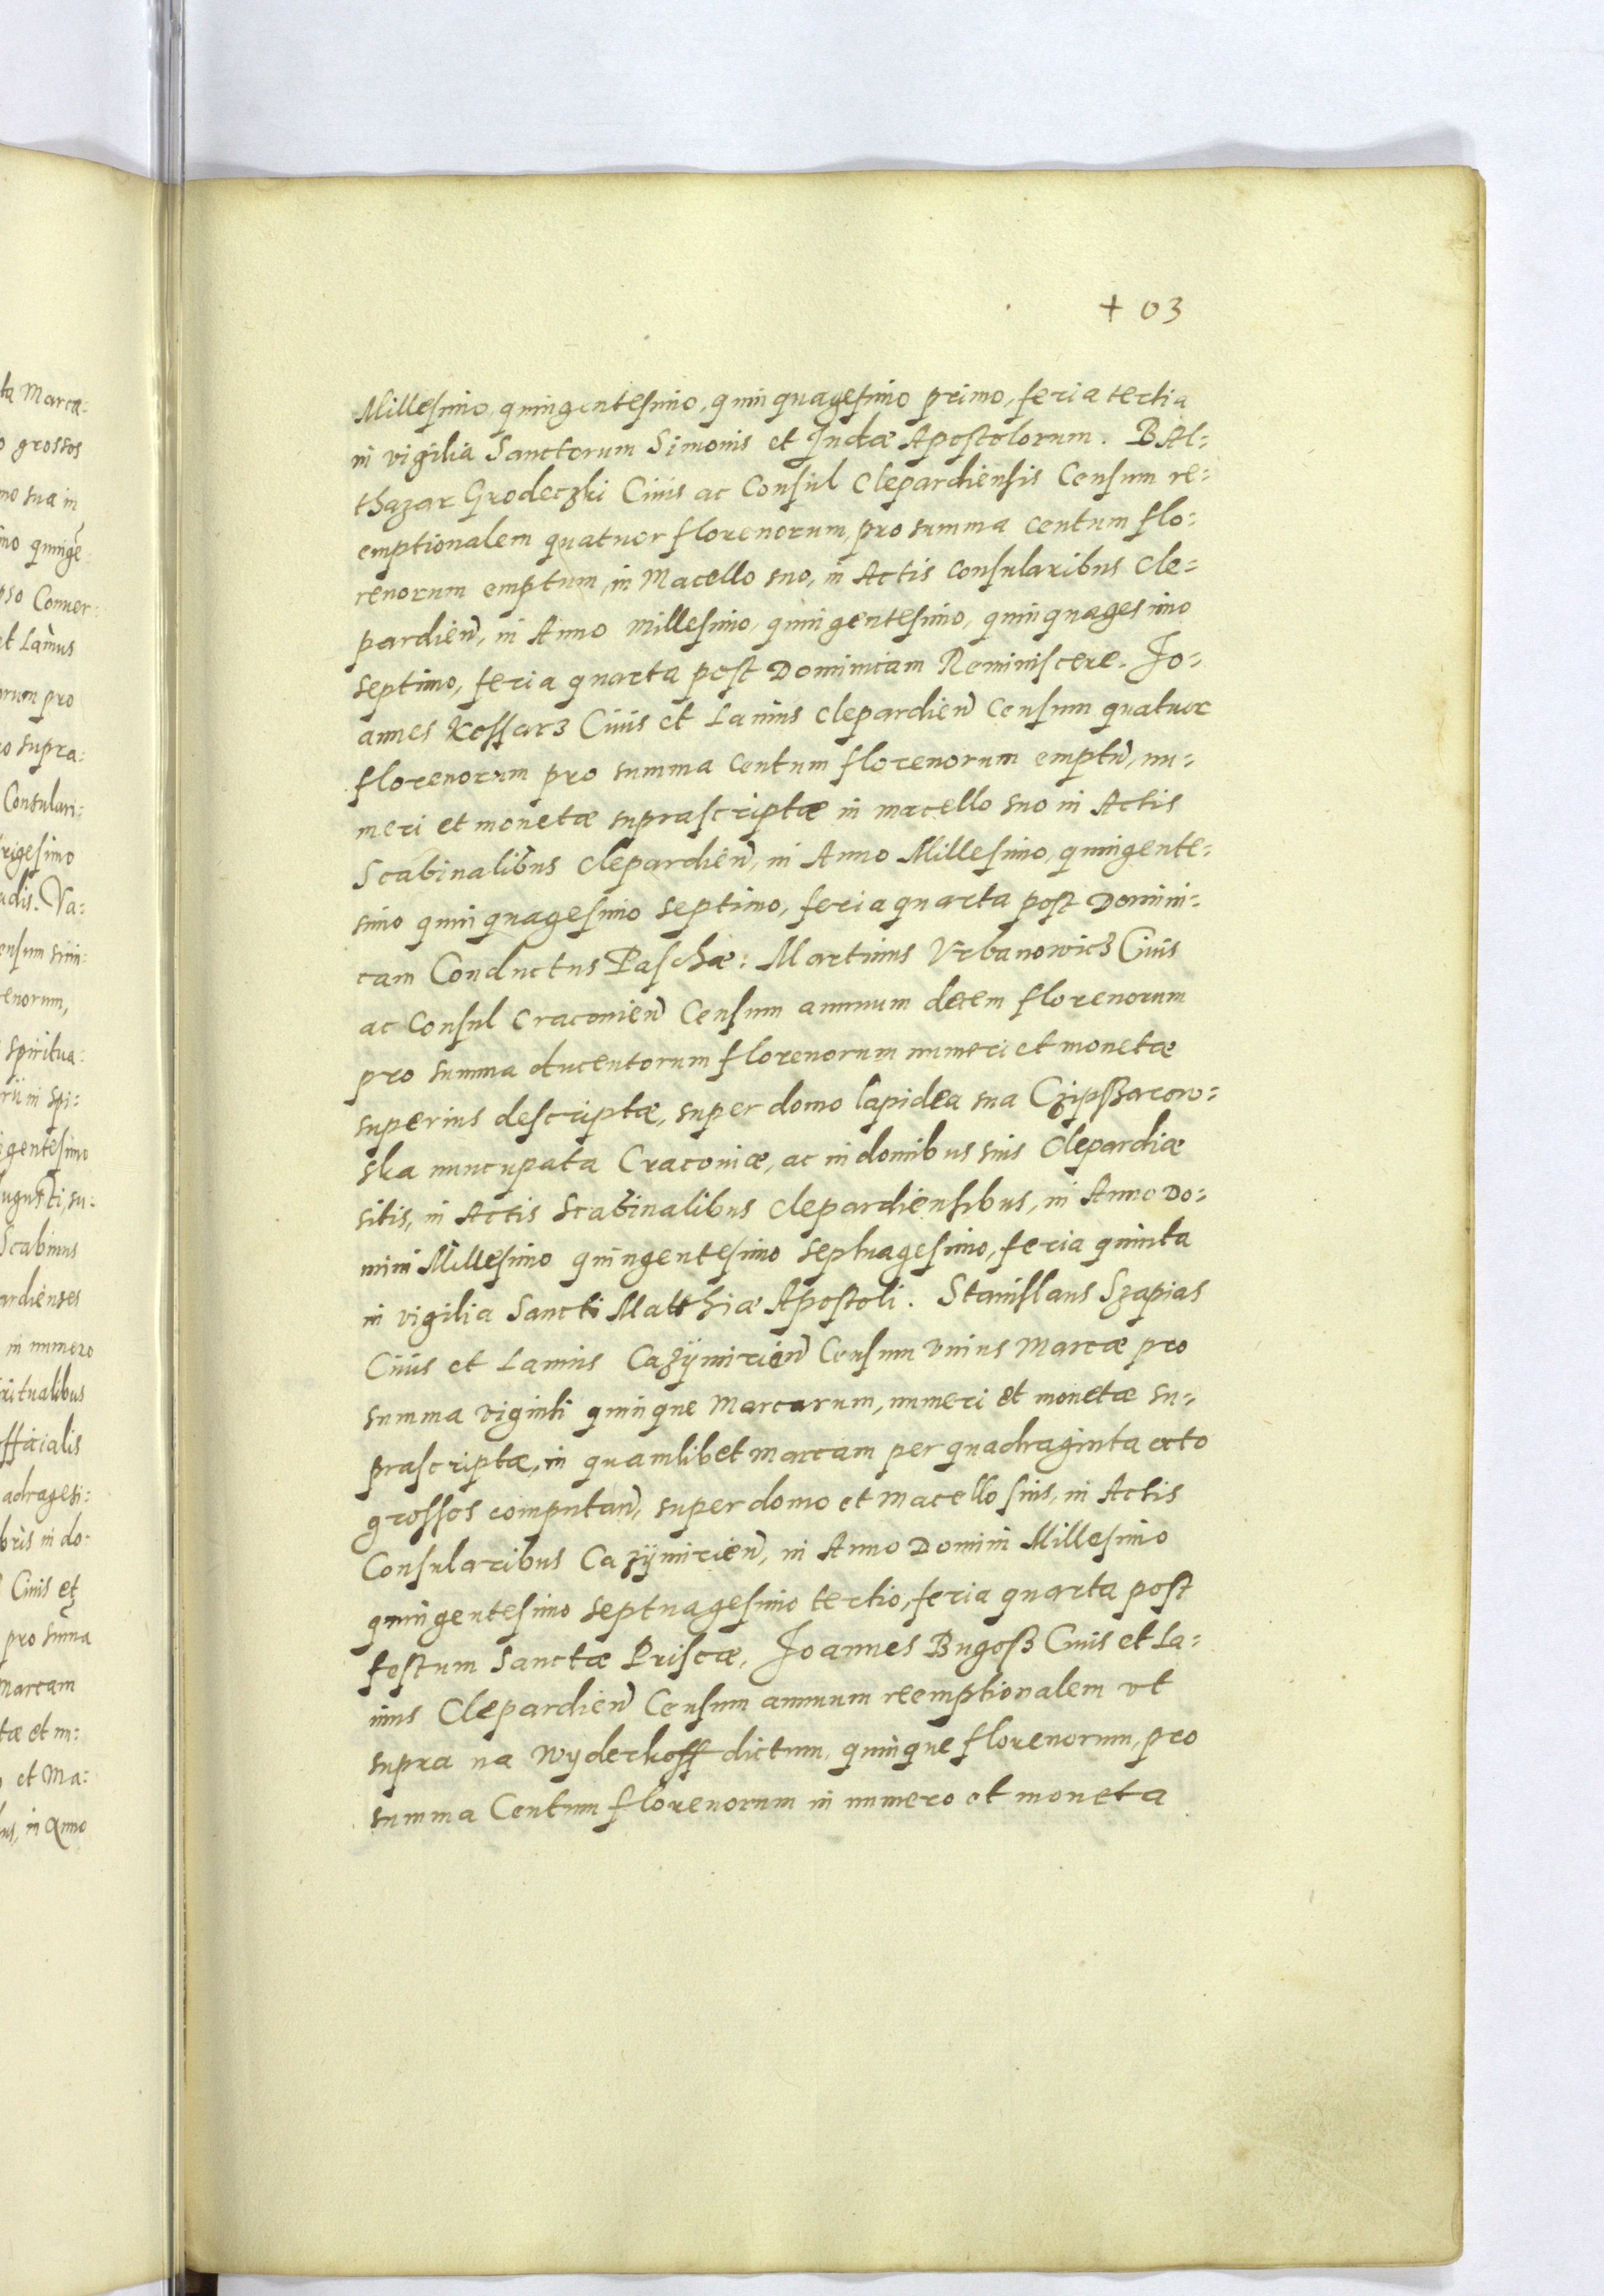 + 03
Millesimo, quingentesimo, quinquagesimo primo, feria tertia
in vigilia Sanctorum Simonis et Judæ Apostolorum. BAl=
thazar Grodeczki Ciuis ac Consul Clepardiensis Censum re=
emptionalem quatuor florenorum, pro summa centum flo=
renorum emptum, in Macello suo, in Actis Consularibus Cle=
pardień, in Anno Millesimo, quingentesimo, quinquagesimo
septimo, feria quarta post Dominicam Reminiscere. Jo=
annes Kossarz Ciuis et Lanius Clepardień Censum quatuor
florenorum pro summa Centum florenorum emptũ, nu=
meri et monetæ suprascriptæ in macello suo in Actis
Scabinalibus Clepardień, in Anno Millesimo, quingente=
simo quinquagesimo septimo, feria quarta post Domini=
cam Conductus Paschæ: Martinus Vrbanowicz Ciuis
ac Consul Cracouień Censum annuum decem florenorum
pro summa ducentorum florenorum numeri et monetæ
superius descriptæ, super domo lapidea sua Czipszarow=
ska nuncupata Cracouiæ, ac in domibus suis Clepardiæ
sitis, in Actis Scabinalibus Clepardiensibus, in Anno Do=
mini Millesimo quingentesimo septuagesimo, feria quinta
in vigilia Sancti Matthiæ Apostoli. Stanislaus Szapias
Ciuis et Lanius Cazÿmirień Censum vnius Marcæ pro
summa viginti quinque Marcarum, numeri et monetæ su=
prascriptæ, in quamlibet marcam per quadraginta octo
grossos computań, super domo et macello suis, in Actis
Consularibus Cazÿmirień, in Anno Domini Millesimo
quingentesimo septuagesimo tertio, feria quarta post
festum Sanctæ Priscæ, Joannes Bugosz Ciuis et La=
nius Clepardień Censum annuum reemptionalem vt
supra na Wyderkoff dictum, quinque florenorum, pro
summa Centum florenorum in numero et moneta